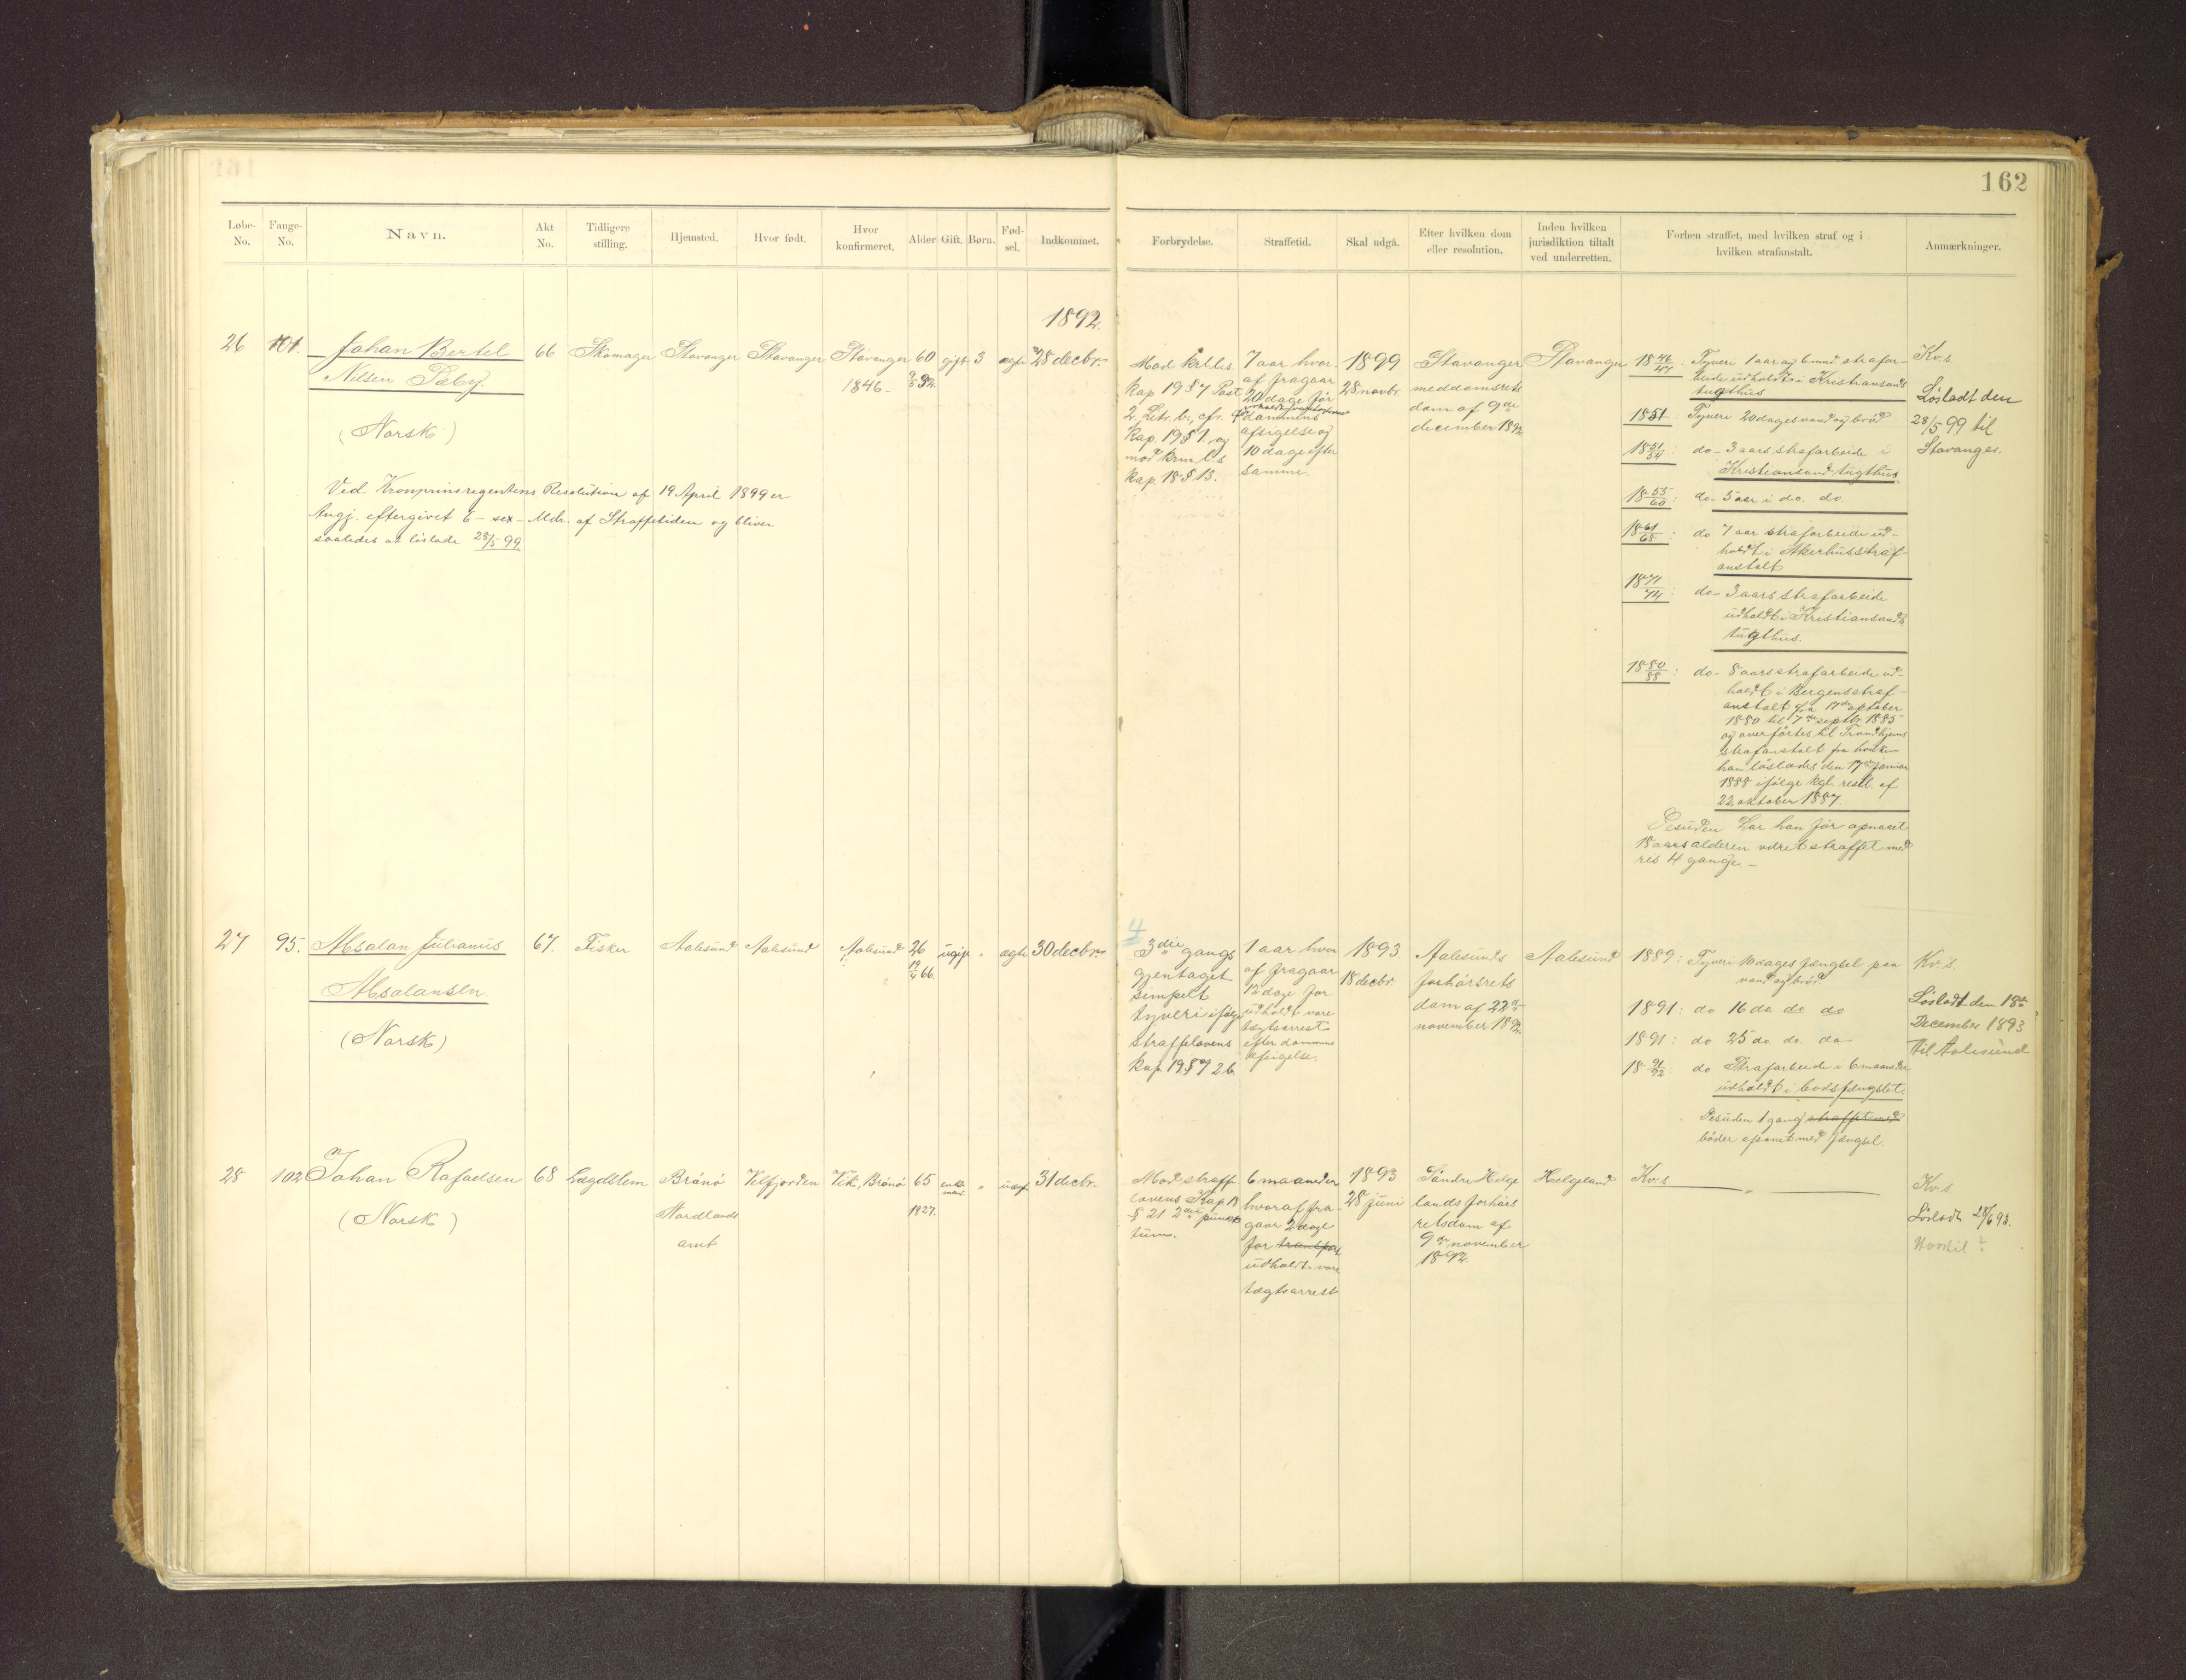 162
Løbe-No. Fange-No. Navn. Akt No. Tidligere stilling. Hjemsted. Hvor født. Hvor konfirmeret. Alder Gift. Børn. Fødsel. Indkommet.
Forbrydelse. Straffetid. Skal udgå. Efter hvilken dom eller resolution. Inden hvilken jurisdiktion tiltalt ved underretten. Forhen straffet, med hvilken straf og i hvilken strafanstalt. Anmærkninger.
1892.
26 101. Johan Bertel 66 Skomager Stavanger Stavanger Stavanger 60 gift 3 ægte 28 decbr.
Nilsen
1846-
(Norsk)
Ved Kronprinsregentens Resolution af 19 April 1899 er
Angj. eftergivet 6 - sex - Mdr. af Straffetiden og bliver
saaledes at løslade 28/5 99.
Kap 19 § 7 Post
2, Litr. b., cfr.
Kap. 19 § 1. og
mod krm. l.s
Kap. 18 § 13.
7 aar hvor-
af fragaar
20 dage før
dommens
afsigelse og
10 dage efter
samme.
1899
28 novbr.
Stavanger
meddomsrets
dom af 9de
december 1892
Stavanger
18 46/47 : Tyveri 1 aar og 6 mnd. strafar-
beide udholdt i Kristiansands
tugthus
1851 : Tyveri 20 dages vand og brød
18 51/54 : do - 3 aars strafarbeide i
Kristiansand tugthus
18 55/60 : do - 5 aar i do. do
18 61/68 : do 7 aar strafarbeide ud-
holdt i Akerhus straf-
anstalt
18 71/74 : do - 3 aars strafarbeide
udholdt i Kristiansands
tugthus.
18 80/88 : do - 8 aars strafarbeide ud-
holdt i Bergens straf-
anstalt fra 17de oktober
1880 til 7de septbr. 1885
og overførtes til Trondhjems
strafanstalt fra hvilken
han løslades den 17de januar
1888 ifølge kgl. resol. af
22 oktober 1887.
Desuden har han før opnaaet
18 aars alderen været straffet med
ris 4 gange. -
Kv.s.
Løsladt den
28/5 99 til
Stavanger.
27 95. Absalon Julianus 67. Fisker Aalesund Aalesund Aalesund 26 ugift " ægte 30 decbr.
19/4 66.
Absalonsen.
(Norsk)
4
3die gangs
gjentaget
simpelt
tyveri ifølge
straffelovens
kap. 19 § 7 2 b.
1 aar hvor
af fragaar
12 dage for
udholdt vare
tægtsarrest
efter dommens
afsigelse.
1893.
18 decbr.
Aalesunds
forhørsrets
dom af 22de
november 1892.
Aalesund
1889 : Tyveri 10 dages fængsel paa
vand og brød
1891 : do 16 do do do
1891 : do 25 do. do. do
18 91/92 do Strafarbeide i 6 maaneder
udholdt i bodsfængslet.
Desuden 1 gang straffet med
bøder afsonet med fængsel.
Kv.s.
Løsladt den 18de
December 1893
til Aalesund
28 102 Johan Rafaelsen 68 Lægdslem Brønø Velfjorden Vik, Brønø 65 enkemand " uægt 31 decbr.
(Norsk)
Nordlands
amt
1827.
Mod straffe
lovens Kap. 18
§ 21 2det punk-
tum.
6 maaneder
hvoraf fra-
gaar 2 dage
for transport
udholdt vare
tægtsarrest
1893
28 juni
Søndre Helge
lands forhørs
retsdom af
9de november
1892.
Helgeland
Kv.s "
Kv.s
Løsladt 28/6 93.
Hvortil ?